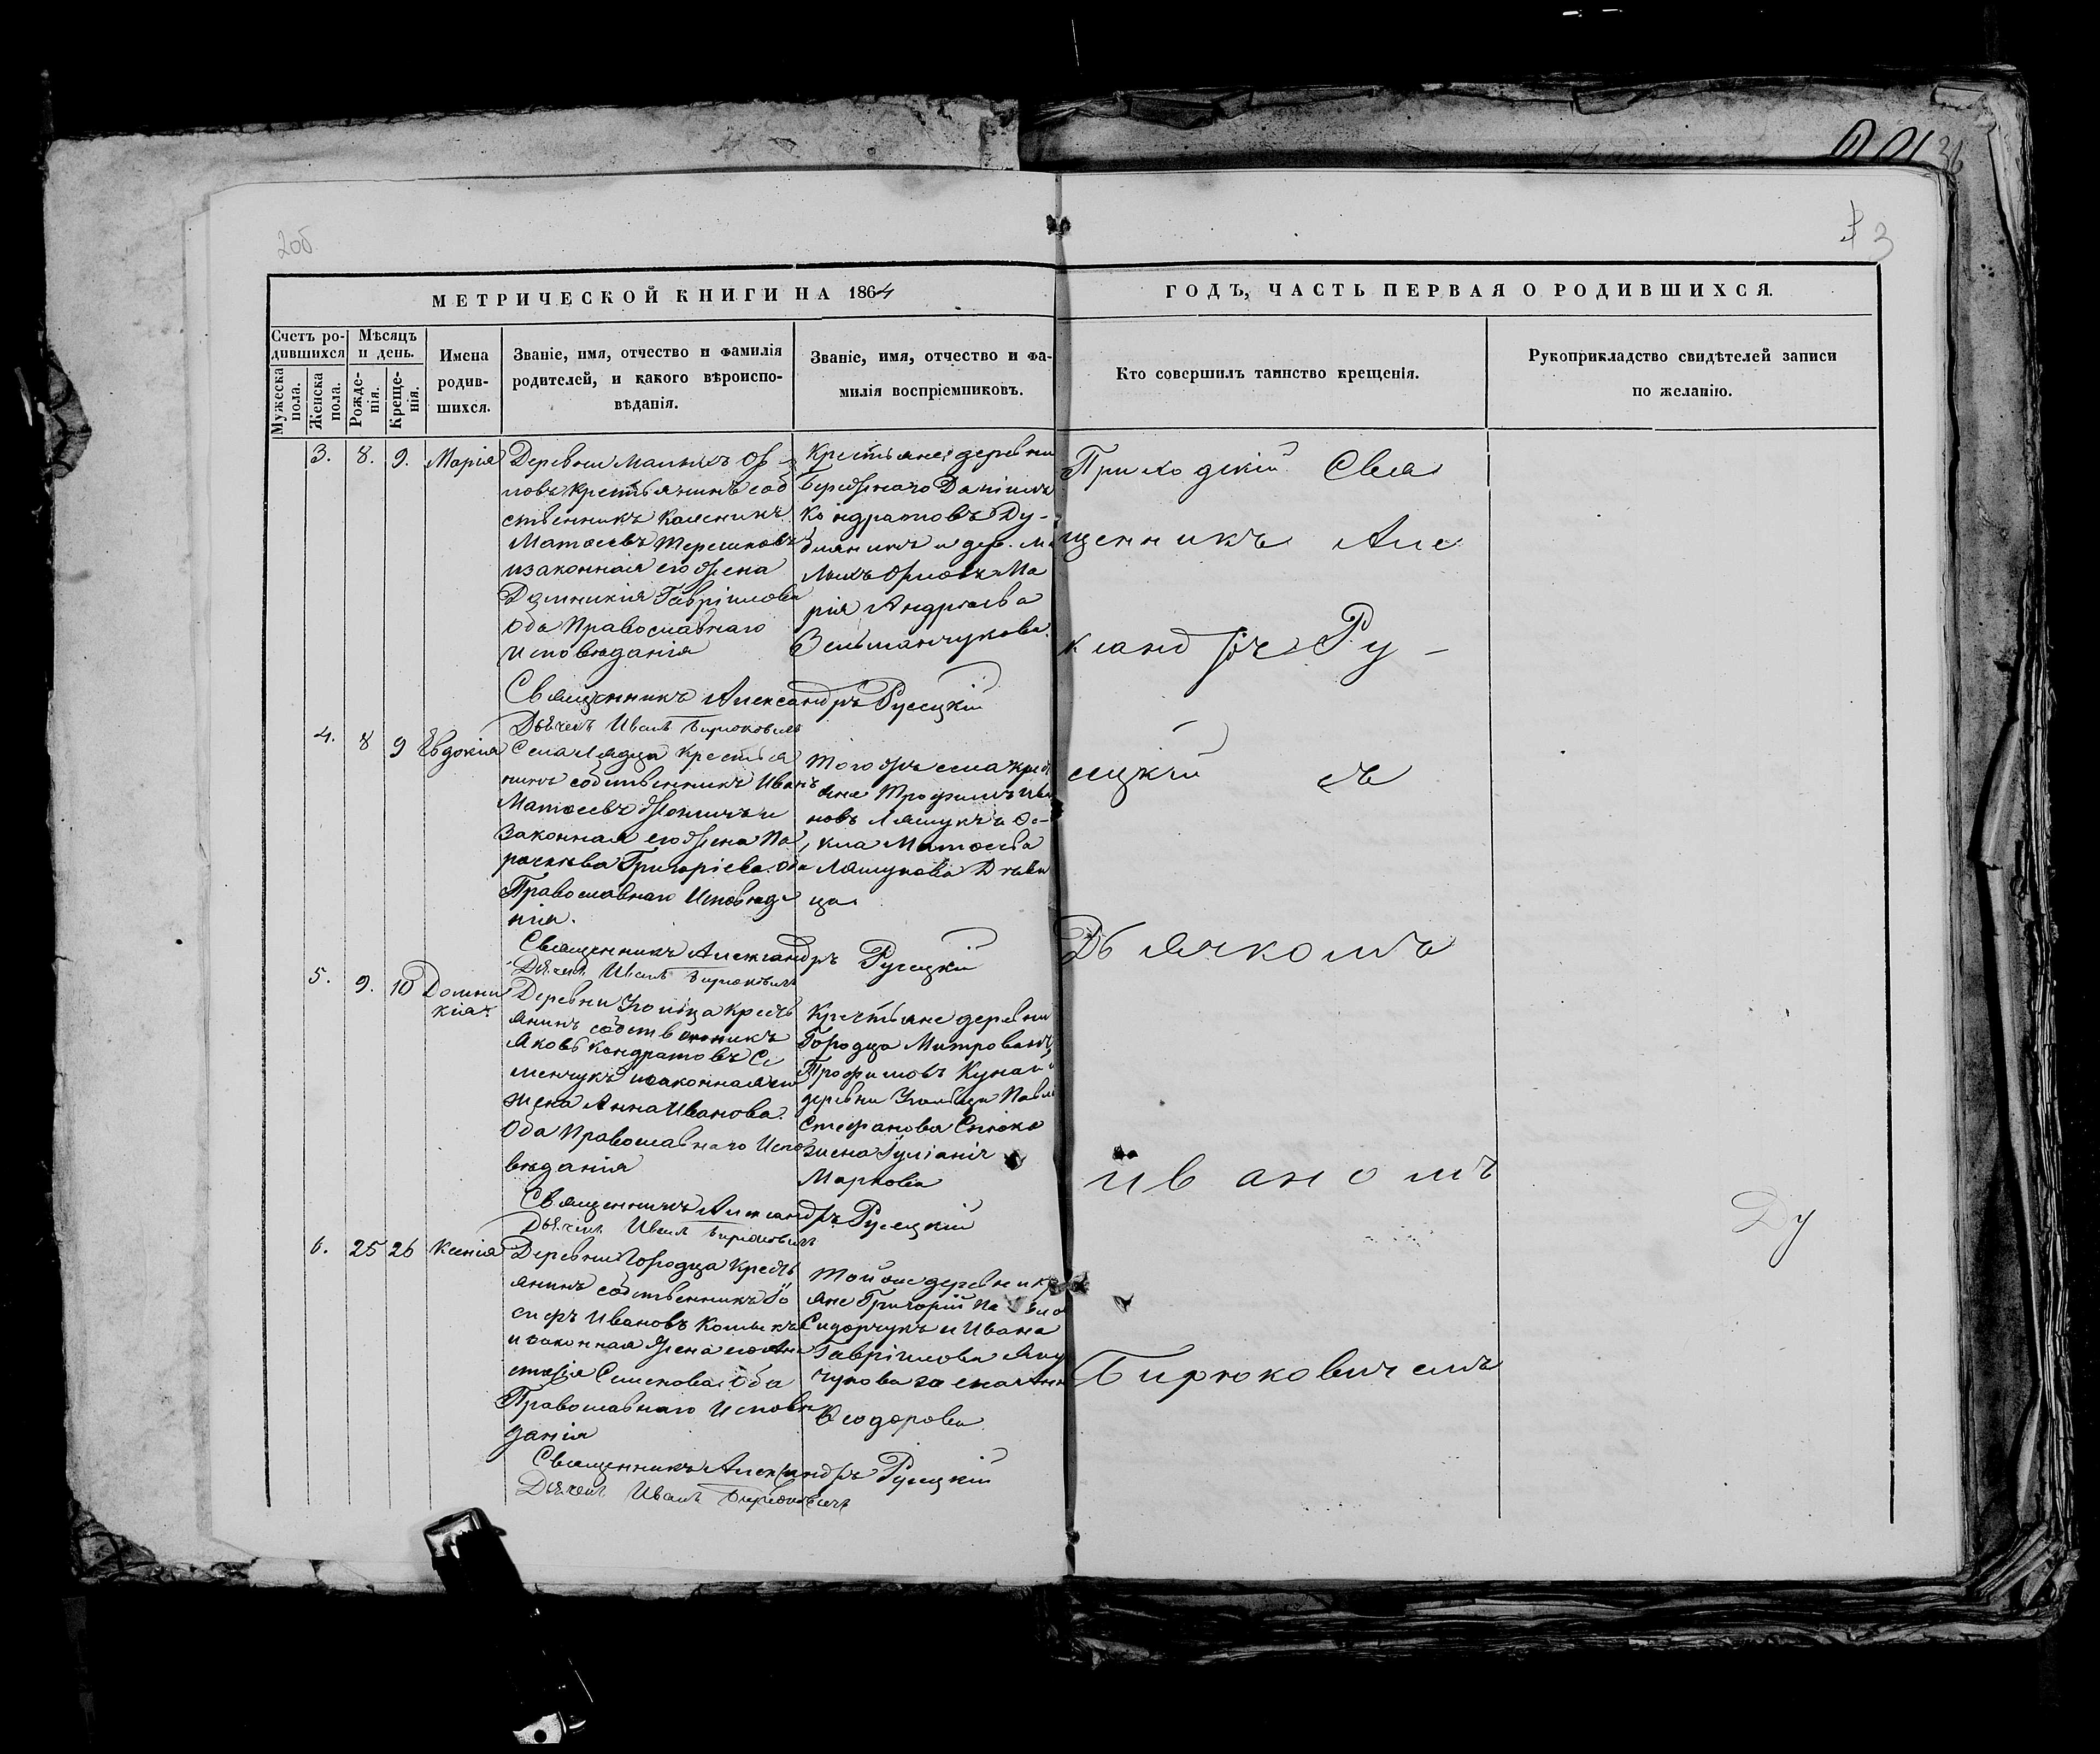 2об
3
МЕТРИЧЕСКОЙ КНИГИ НА 1864
ГОДЪ, ЧАСТЬ ПЕРВАЯ О РОДИВШИХСЯ.
Счетъ родившихся
Мужеска пола.
Женска пола.
Мѣсяцъ и день.
Рожденія.
Крещенія.
Имена родившихся.
Званіе, имя, отчество и фамилія
родителей, и какого вѣроиспо-
вѣданія.
Званіе, имя, отчество и фа-
милія воспріемниковъ.
Кто совершилъ таинство крещенія.
Рукоприкладство свидѣтелей записи
по желанію.
3. 8. 9. Марія
Деревни Малыхъ Ор-
ловъ крестьянинъ соб
ственникъ Каленикъ
Матѳеевъ Терешковъ
и законная его жена
Домникія Гавріилова
Оба Православнаго
Исповѣданія
Крестьяне деревни
Бережнаго Даніилъ
Кондратовъ Ду-
и дер. Ма
лыхъ Орловъ Ма
рія Андреева
Вельманчукова.
Священникъ Александръ Русецкій
Дьячекъ Иванъ Бирюковичъ
4. 8 9 Евдокія
Села крестья
нинъ собственникъ Иванъ
Матѳеевъ и
законная его жена Па
раскева Григоріева. Оба
Православнаго Исповѣда
нія.
Того жъ села крест
яне Трофимъ Ива
новъ Ляшукъ и Ѳе-
кла Матѳеева
Ляшукова Дѣви
ца
Священникъ Александръ Русецкій
Дьячекъ Иванъ Бирюковичъ
5. 9. 10 Домни
кія
Деревни Угольца крест
янинъ собственникъ
Яковъ Кондратовъ Се
менчукъ и законная его
жена Анна Иванова.
Оба Православнаго Испо
вѣданія
Крестьяне деревни
Городца Митрофанъ
Трофимовъ
деревни Угольца
Стефанова
жена Іуліанія
Маркова
Священникъ Александръ Русецкій
Дьячекъ Иванъ Бирюковичъ
6. 25 26 Ксенія
Деревни Городца крест
янинъ собственникъ Іо
сифъ Ивановъ
и законная жена его Ана
стасія Семенова. Оба
Православнаго Исповѣ
данія
Той же деревни кр
яне Григорій Павло
Сидорчукъ и Ивана
Гавріилова Яку
чукова жена Анна
Ѳеодорова
Священникъ Александръ Русецкій
Дьячекъ Иванъ Бирюковичъ
Приходскій Свя
щенникъ Але
ксандръ Ру-
сецкій съ
Дьячкомъ
Иваномъ
Бирюковичемъ
Ду